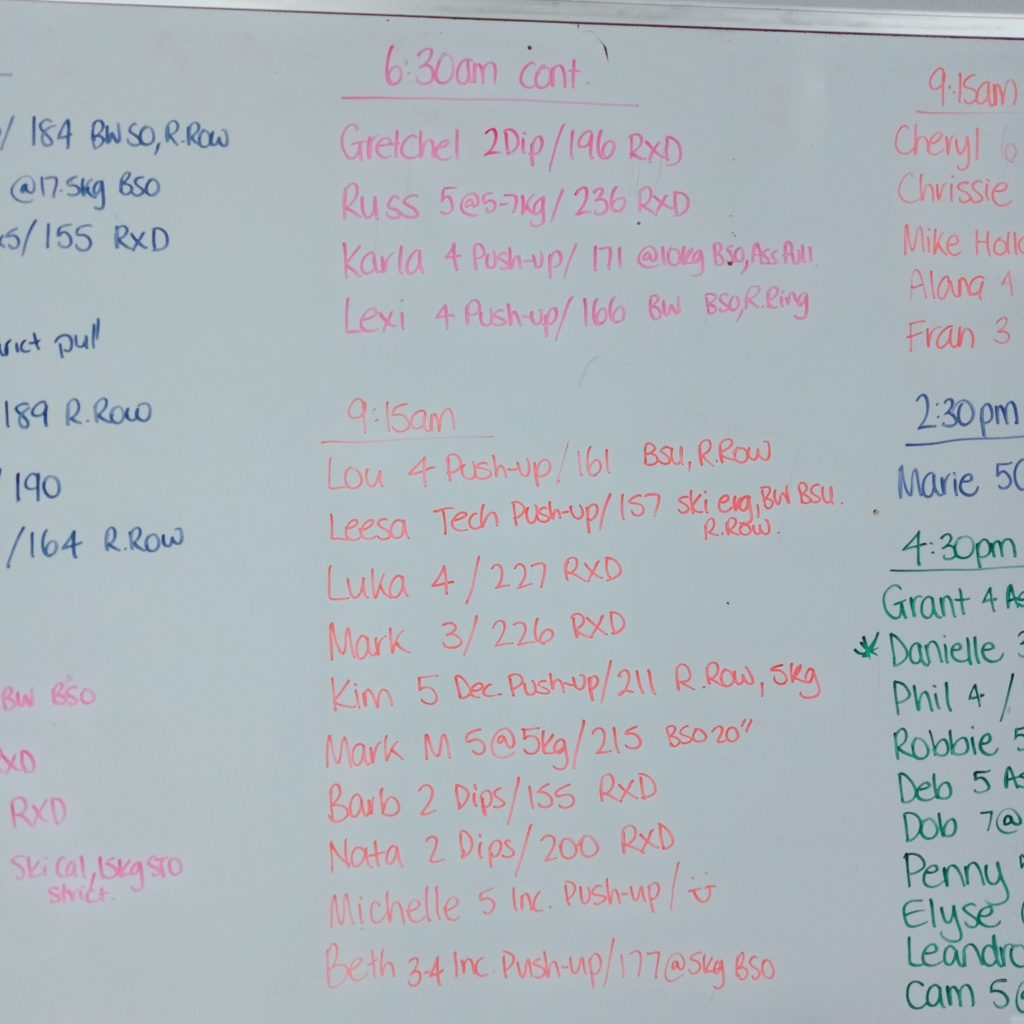 / 184 BW SO, R.Row
@17.5kg BSO
/155 RXD
pull
189 R.Row
190
/164 R.Row
BW BSO
RXD
Ski Cal, 15kg STO
strict.
6:30am cont.
Gretchel 2Dip/196 RXD
Russ 5@5-7kg/236 RXD
Karla 4 Push-up/ 171 @10kg BSO, Ass Pull
Lexi 4 Push-up/166 BW BSO, R.Ring
9:15am
Lou 4 Push-up/161 BSU, R.Row
Leesa Tech Push-up/157 ski erg, BW BSU.
R.Row.
Luka 4/227 RXD
Mark 3/226 RXD
Kim 5 Dec. Push-up/211 R.Row, 5kg
Mark M 5@5kg/215 BSO 20"
Barb 2 Dips/155 RXD
Nata 2 Dips/200 RXD
Michelle 5 Inc. Push-up/ü
Beth 3-4 Inc. Push-up/177@5kg BSO
9:15am
Cheryl 6
Chrissie
Mike
Alana 4
Fran 3
2:30pm
Marie
4:30pm
Grant 4
* Danielle
Phil 4 /
Robbie 5
Deb 5
Dob 7@
Penny
Elyse
Leandro
Cam 5@